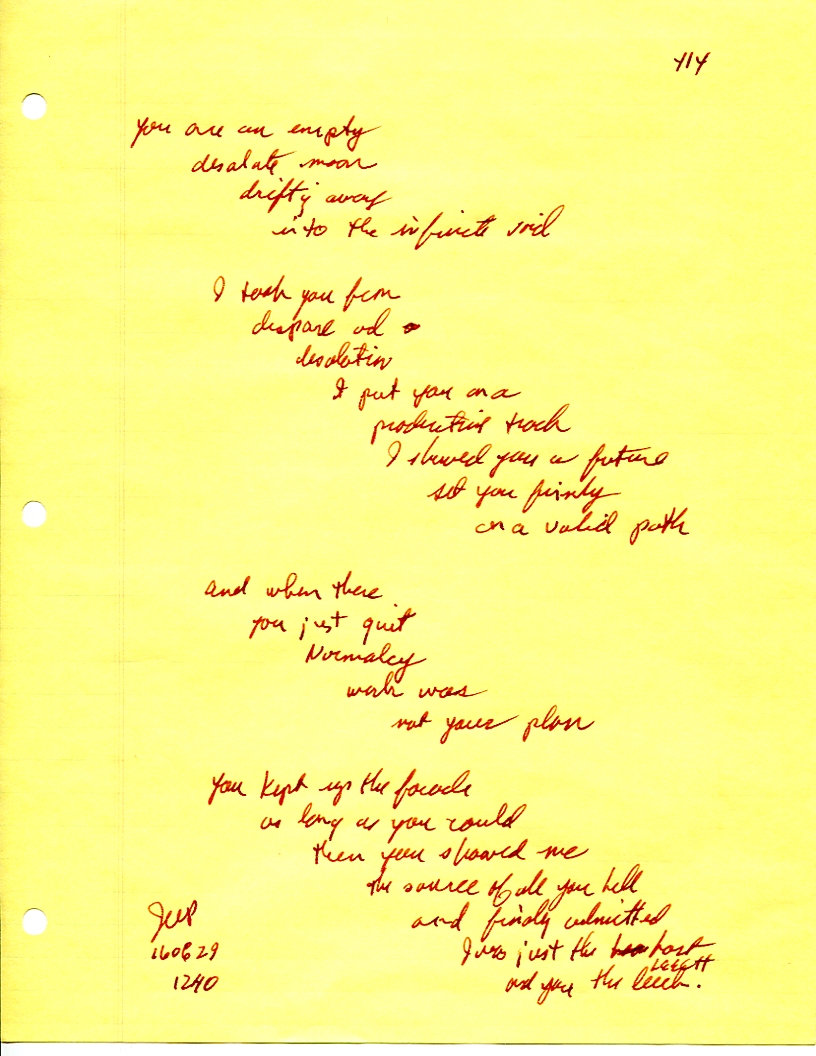 414
you are an empty
desalate moon
drifty away
into the infinite void
I took you from
dispare ad
desolation
I put you on a
productive track
I showed you a future
set you firmly
on a valid path
and when there
you just quit
Normalcy
work was
not your plan
you kept up the facade
as long as you could
then you showed me
the source of all you hell
and finaly admitted
I was just the host
LEECH
and you the leech.
160829
1240